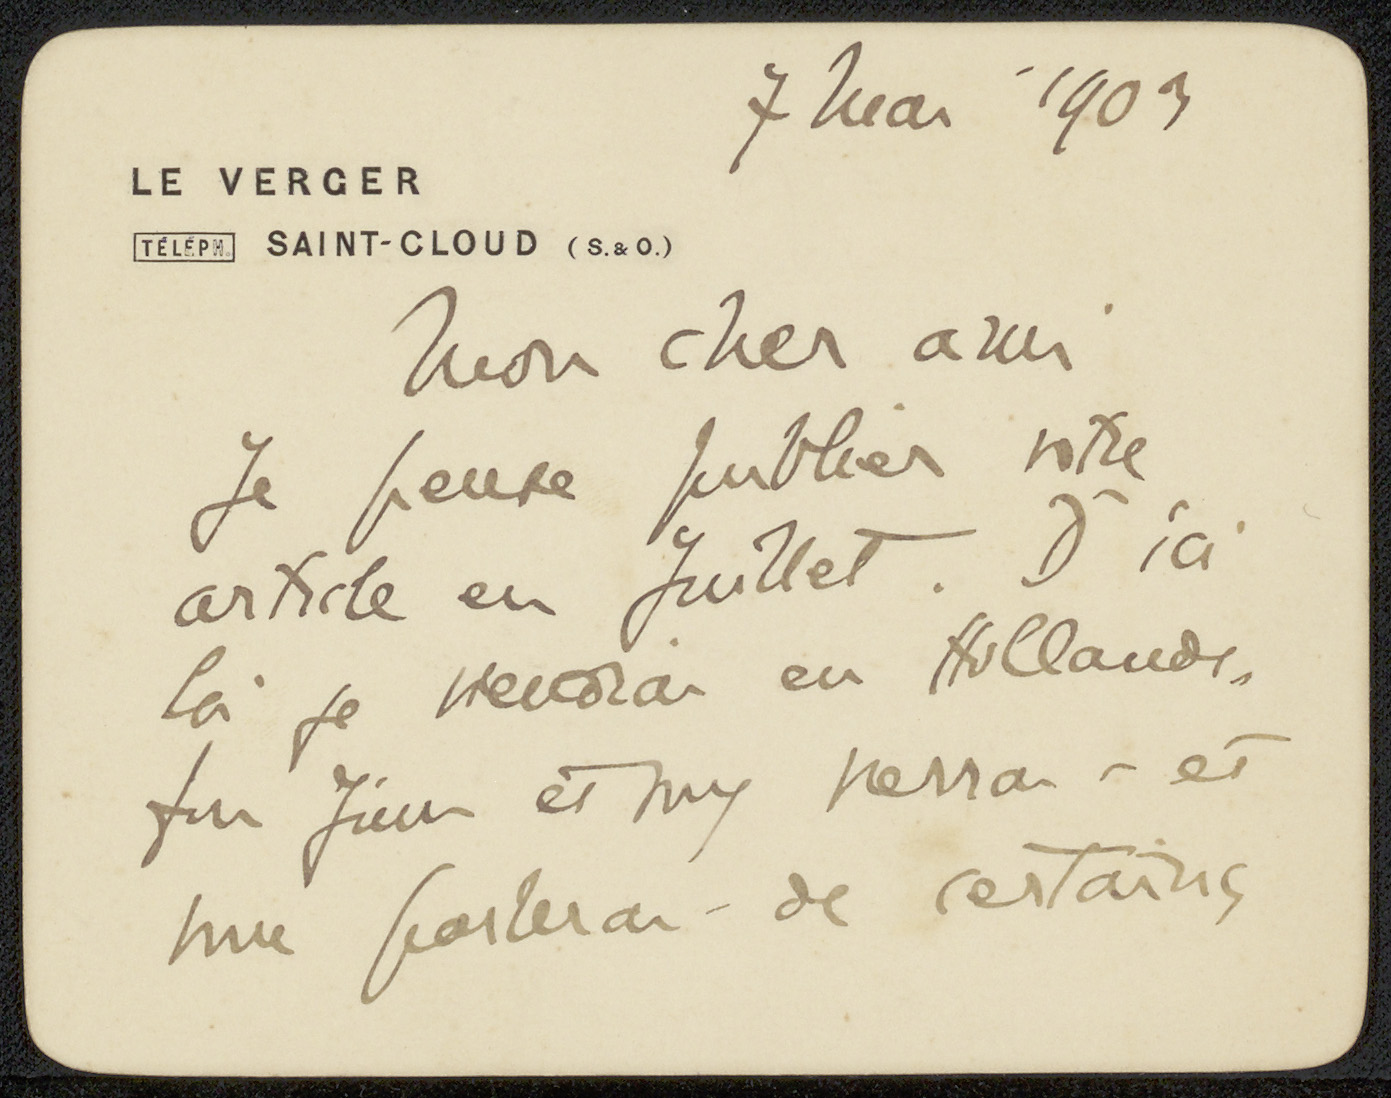 7 Mai 1903
LE VERGER
TÉLÉPH. SAINT-CLOUD (S. & O.)
Mon cher ami
Je pense publier votre
article en Juillet. D'ici
là je viendrai en Hollande,
fin Juin et vous verrai - et
vous parlerai - de certains